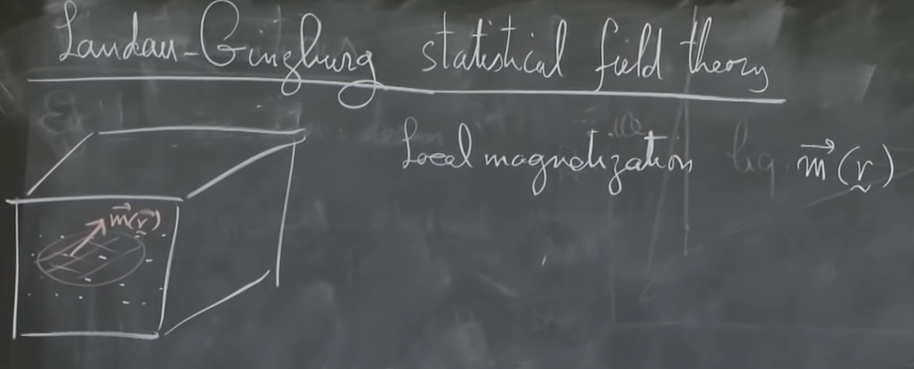 Landau-Ginzburg statistical field theory
Local magnetization m⃗(r)
m⃗(r)